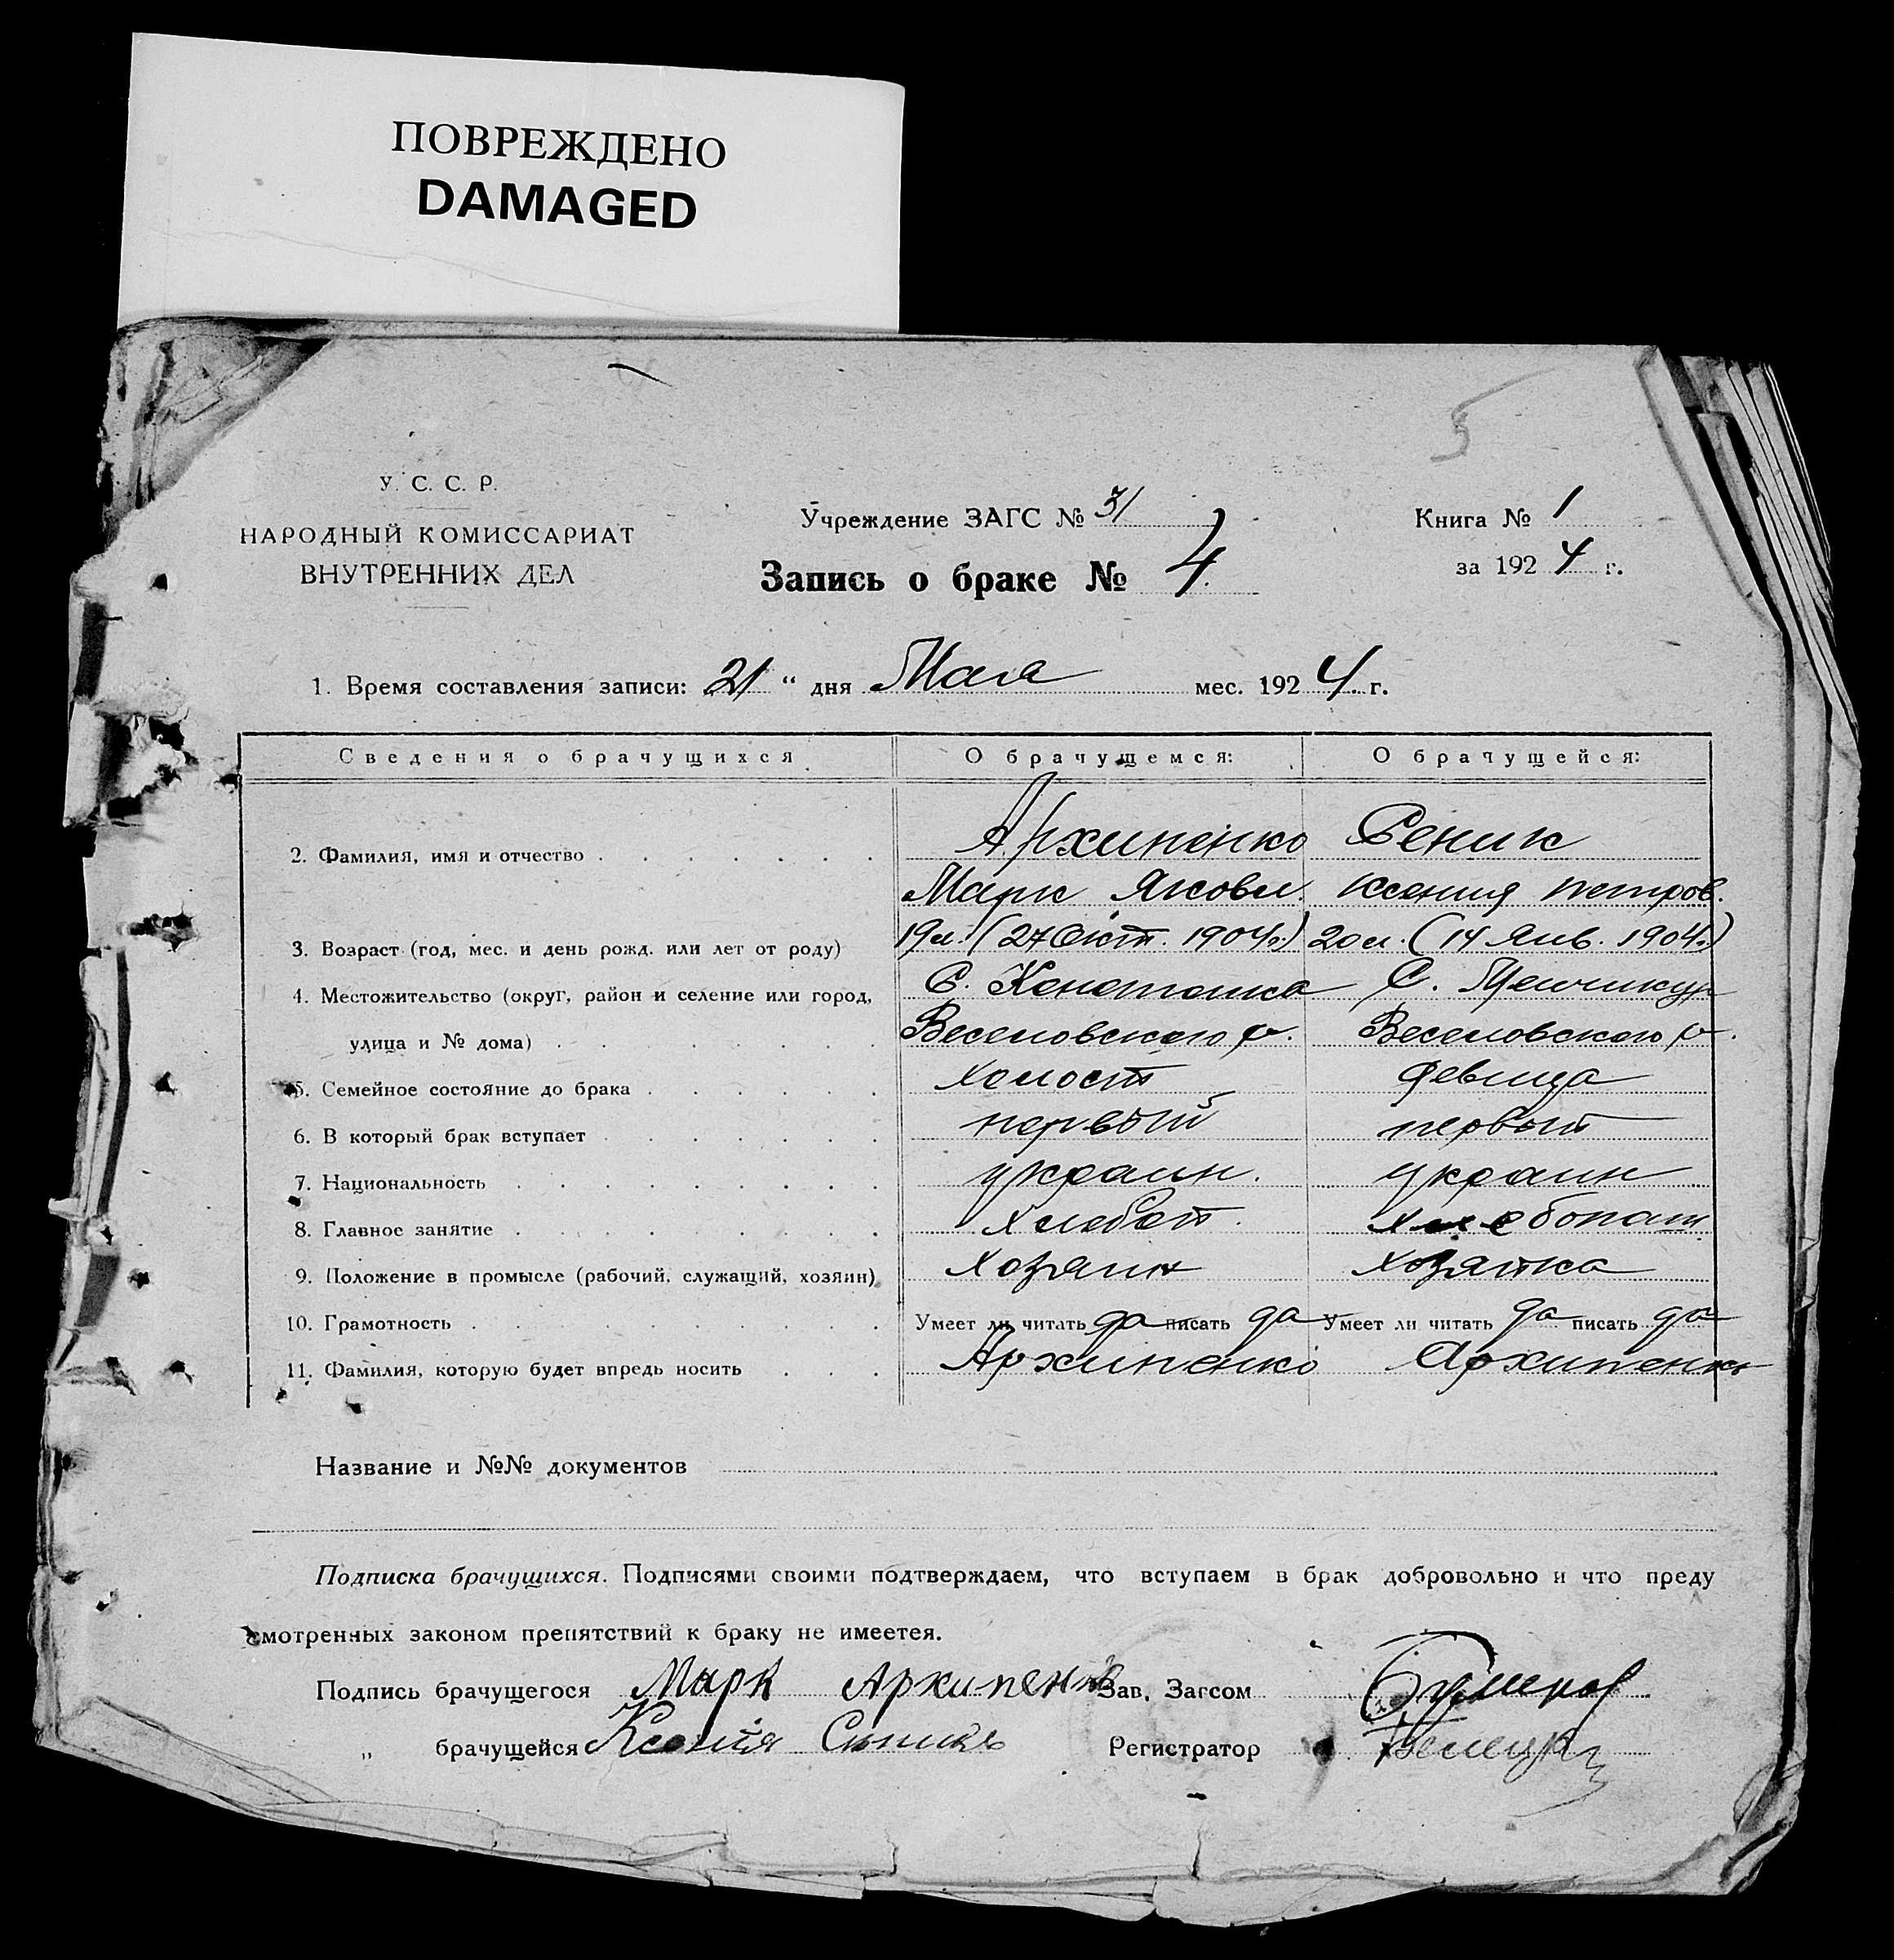 ПОВРЕЖДЕНО
DAMAGED
5
У. С. С. Р.
НАРОДНЫЙ КОМИССАРИАТ
ВНУТРЕННИХ ДЕЛ
Учреждение ЗАГС № 31
Запись о браке № 4.
Книга № 1
за 1924 г.
1. Время составления записи: 21 " дня Мая мес. 1924. г.
Сведения о брачущихся О брачущемся: О брачущейся:
2. Фамилия, имя и отчество Архипенко Сеник
Марк Яковл. Ксения петров.
3. Возраст (год, мес. и день рожд. или лет от роду) 19 л. (27 Окт. 1904 г.) 20 л. (14 Янв. 1904 г.)
4. Местожительство (округ, район и селение или город, С. С.
улица и № дома) Веселовского р. Веселовского р.
5. Семейное состояние до брака холост девица
6. В который брак вступает первый первый
7. Национальность украин. украин
8. Главное занятие хлебоп. хлебопаш
9. Положение в промысле (рабочий, служащий, хозяин) хозяин хозяйка
10. Грамотность Умеет ли читать да писать да Умеет ли читать да писать да
11. Фамилия, которую будет впредь носить Архипенко Архипенко
Название и №№ документов
Подписка брачущихся. Подписями своими подтверждаем, что вступаем в брак добровольно и что преду
смотренных законом препятствий к браку не имеетея.
Подпись брачущегося Марк Архипенко Зав. Загсом
„ брачущейся Ксения Регистратор